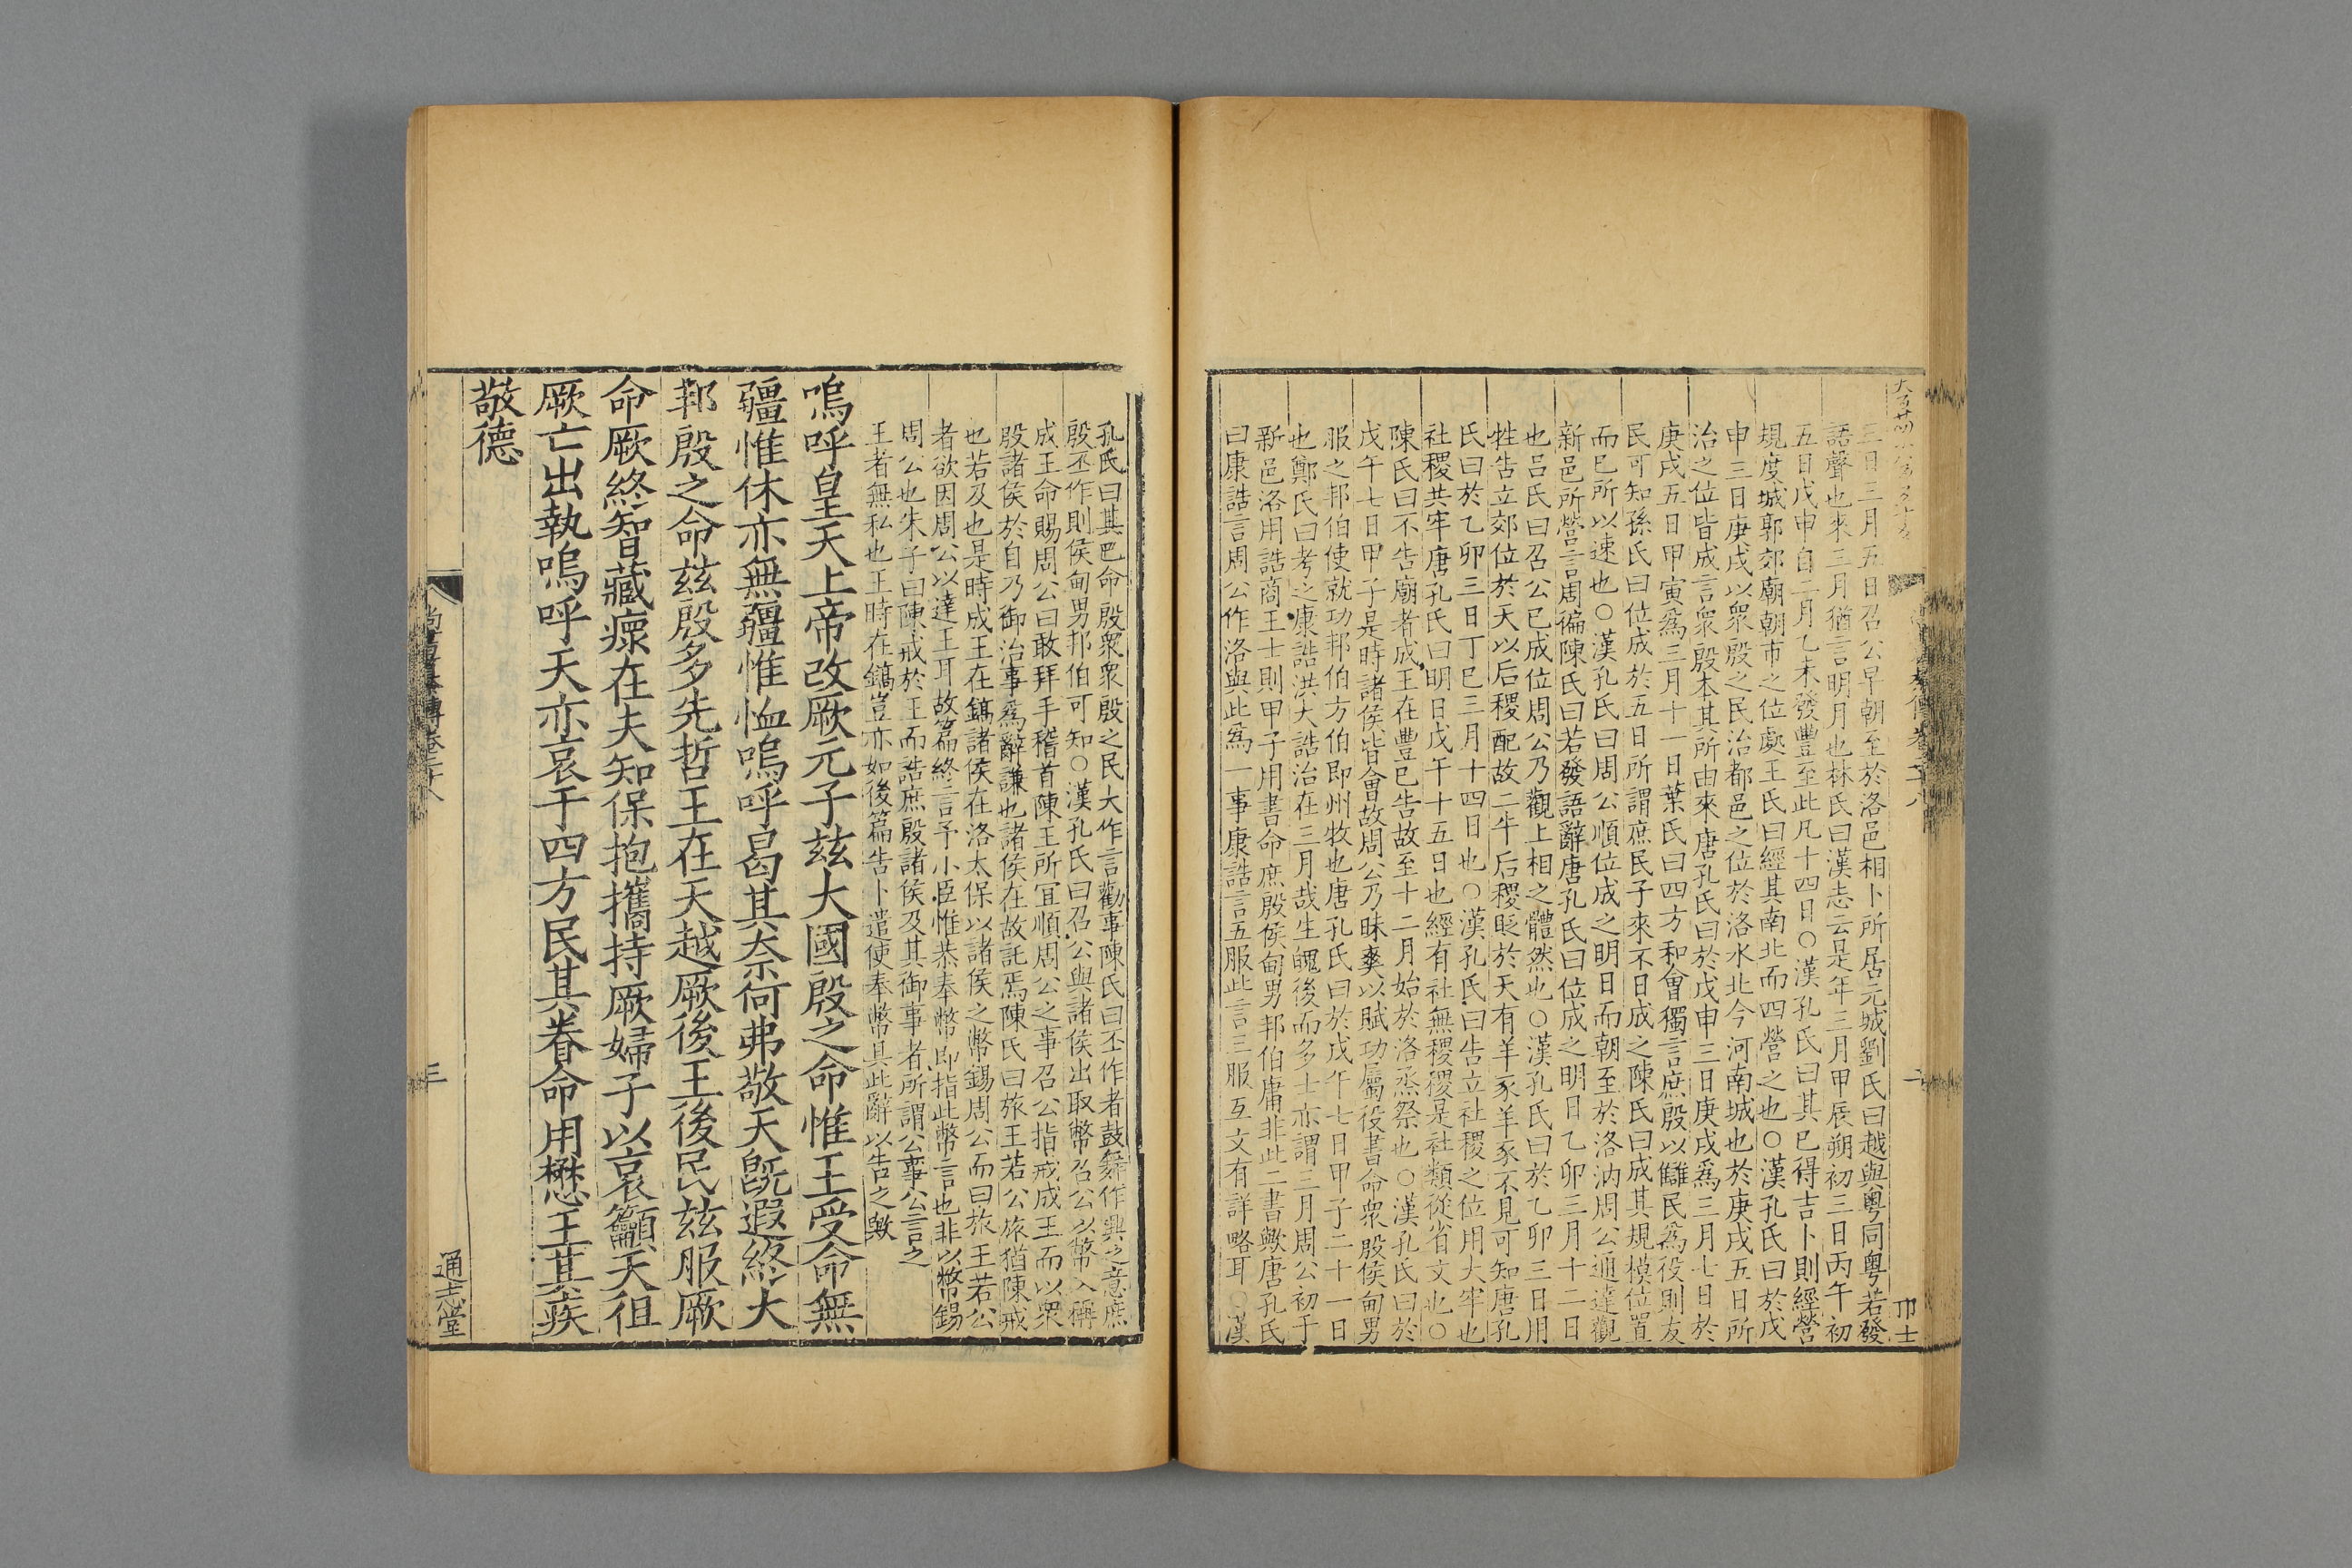 三日三月五日召公早朝至於洛邑相卜所居元城劉氏曰越與粤同粤若發
語聲也來三月猶言明月也林氏曰漢志云是年三月甲辰朔初三日丙午初
五日戊申自二月乙未發豐至此凡十四日○漢孔氏曰其已得吉卜則經營
規度城郭郊廟朝市之位處王氏曰經其南北而四營之也○漢孔氏曰於戊
申三日庚戌以衆殷之民治都邑之位於洛水北今河南城也於庚戌五日所
治之位皆成言衆殷本其所由來唐孔氏曰於戊申三日庚戌爲三月七日於
庚戌五日甲寅爲三月十一日葉氏曰四方和會獨言庶殷以讎民爲役則友
民可知孫氏曰位成於五日所謂庶民子來不日成之陳氏曰成其規模位置
而已所以速也○漢孔氏曰周公順位成之明日而朝至於洛汭周公通達觀
新邑所營言周徧陳氏曰若發語辭唐孔氏曰位成之明日乙卯三月十二日
也呂氏曰召公已成位周公乃觀上相之體然也○漢孔氏曰於乙卯三日用
牲告立郊位於天以后稷配故二牛后稷貶於天有羊豕羊豕不見可知唐孔
氏曰於乙卯三日丁巳三月十四日也○漢孔氏曰告立社稷之位用大牢也
社稷共牢唐孔氏曰明日戊午十五日也經有社無稷稷是社類從省文也○
陳氏曰不告廟者成王在豐已告故至十二月始於洛烝祭也○漢孔氏曰於
戊午七日甲子是時諸侯皆會故周公乃昧爽以賦功屬役書命衆殷侯甸男
服之邦伯使就功邦伯方伯即州牧也唐孔氏曰於戊午七日甲子二十一日
也鄭氏曰考之康誥洪大誥治在三月哉生魄後而多士亦謂三月周公初于
新邑洛用誥商王士則甲子用書命庶殷侯甸男邦伯庸非此二書歟唐孔氏
曰康誥言周公作洛與此爲一事康誥言五服此言三服互文有詳略耳○漢
孔氏曰其已命殷衆衆殷之民大作言勸事陳氏曰丕作者鼓舞作興之意庶
殷丕作則侯甸男邦伯可知○漢孔氏曰召公與諸侯出取幣召公以幣入稱
成王命賜周公曰敢拜手稽首陳王所宜順周公之事召公指戒成王而以衆
殷諸侯於自乃御治事爲辭謙也諸侯在故託焉陳氏曰旅王若公旅猶陳戒
也若及也是時成王在鎬諸侯在洛太保以諸侯之幣錫周公而曰旅王若公
者欲因周公以達王耳故篇終言予小臣惟恭奉幣即指此幣言也非以幣錫
周公也朱子曰陳戒於王而誥庶殷諸侯及其御事者所謂公事公言之
王者無私也王時在鎬豈亦如後篇告卜遣使奉幣具此辭以告之歟
嗚呼皇天上帝改厥元子茲大國殷之命惟王受命無
疆惟休亦無疆惟恤嗚呼曷其奈何弗敬天旣遐終大
邦殷之命茲殷多先哲王在天越厥後王後民茲服厥
命厥終智藏瘝在夫知保抱攜持厥婦子以哀籲天徂
厥亡出執嗚呼天亦哀于四方民其眷命用懋王其疾
敬德
三
通志堂